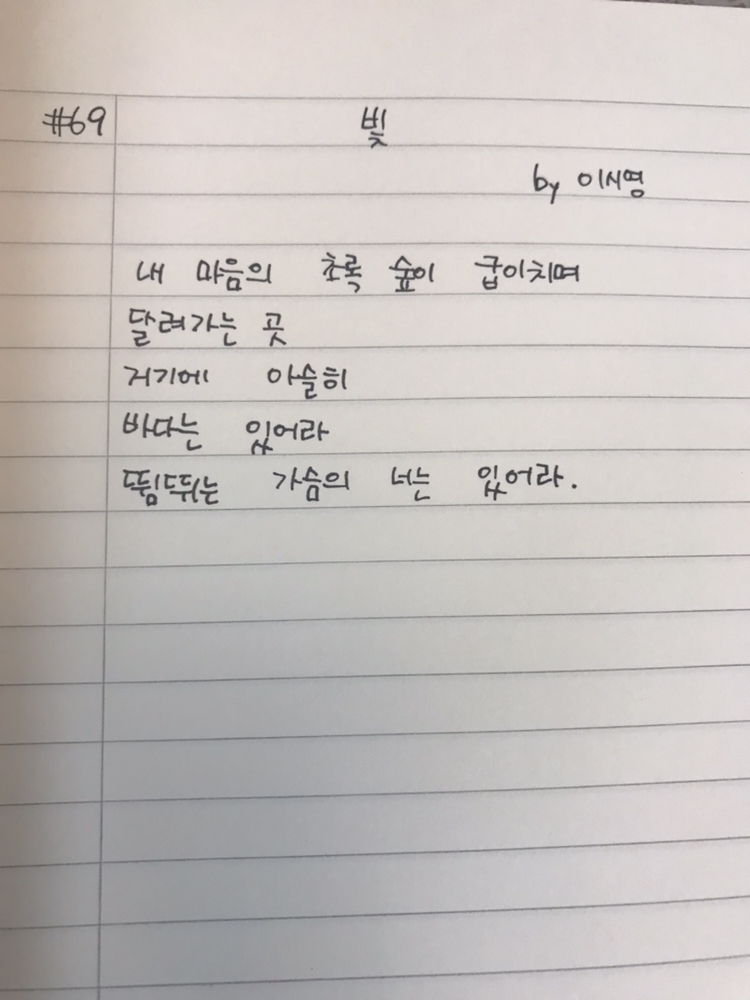 #69 빛
by 이시영
내 마음의 초록 숲이 굽이치며
달려가는 곳
거기에 아슬히
바다는 있어라
뜀뛰는 가슴의 너는 있어라.